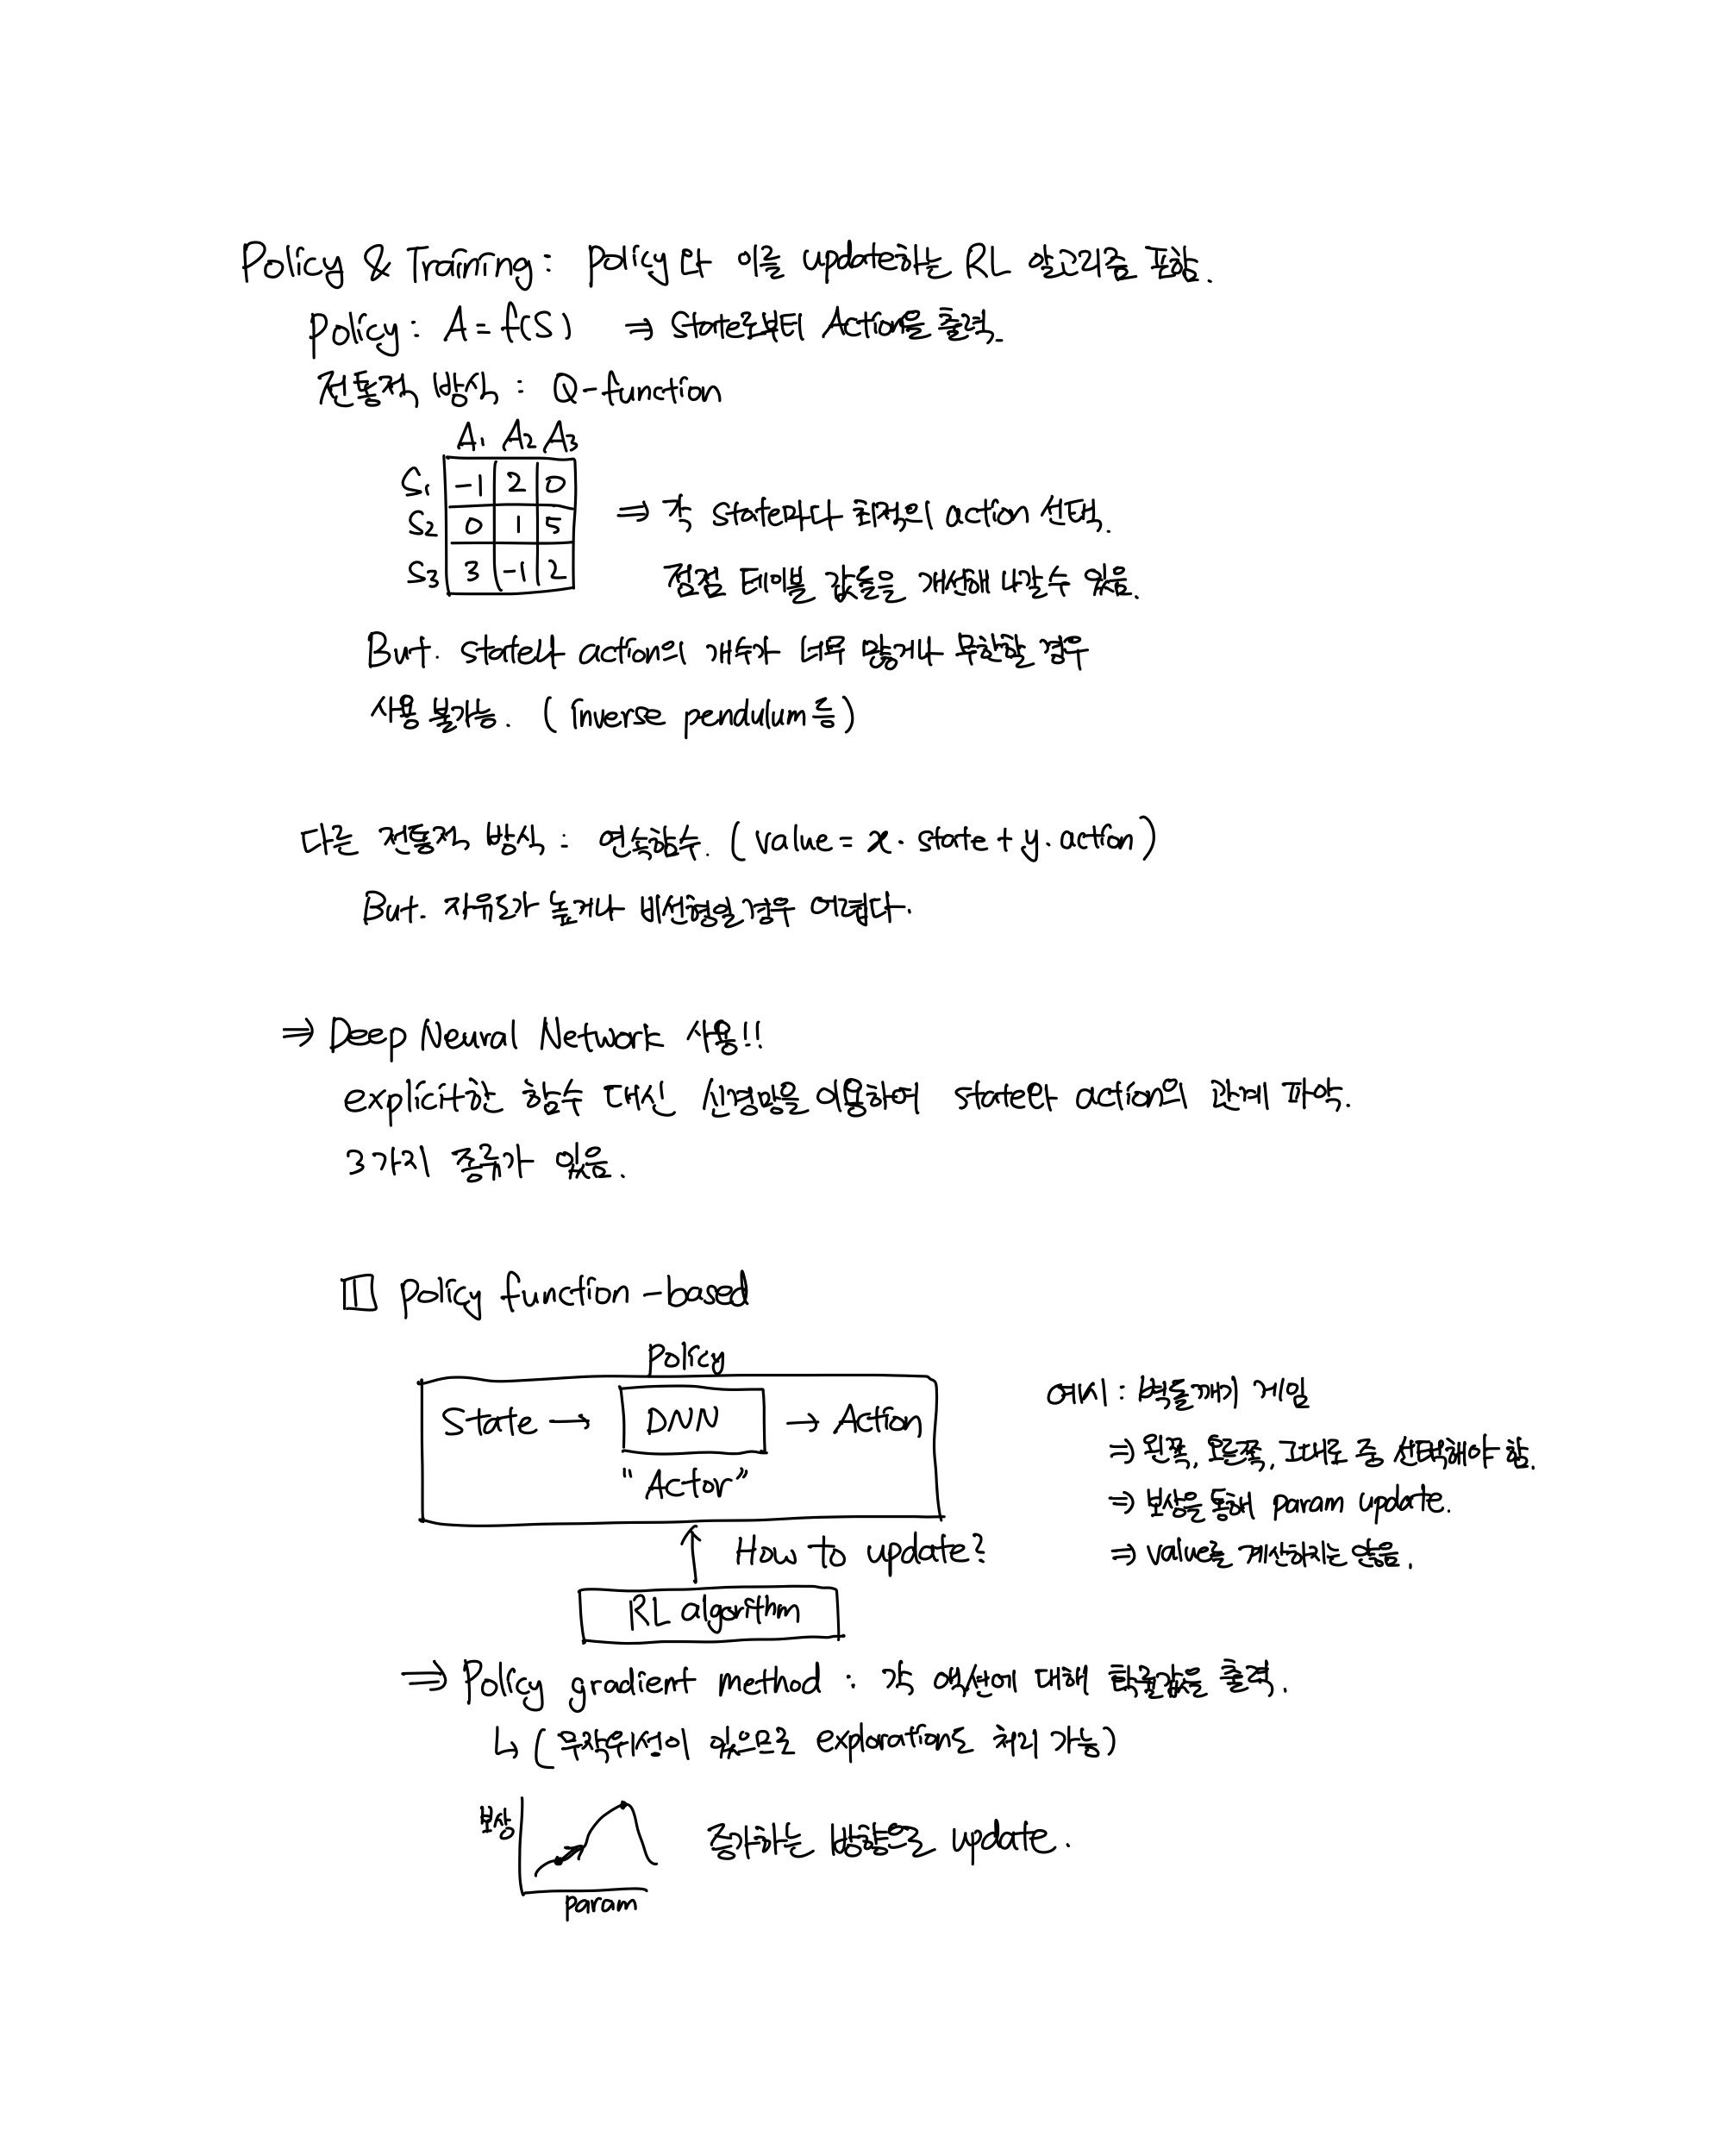 Policy & Training : policy와 이를 update하는 RL 알고리즘 포함.
policy : A = f(S) ⇒ state로부터 Action을 출력.
전통적 방식 : Q-function
A₁ A₂ A₃
S₁ -1 2 0
S₂ 0 1 5
S₃ 3 -1 2
⇒ 각 state마다 최적의 action 선택.
점점 테이블 값들을 개선해 나갈수 있음.
But. state나 action의 개수가 너무 많거나 무한할 경우
사용 불가능. (inverse pendulum 등)
다른 전통적 방식 : 연속함수. (value = x · state + y · action)
But. 자유도가 높거나 비선형일 경우 어렵다.
⇒ Deep Neural Network 사용!!
explicit한 함수 대신 신경망을 이용하여 state와 action의 관계 파악.
3가지 종류가 있음.
1 policy function-based
policy
State → DNN → Action
"Actor"
↑ How to update?
RL algorithm
예시 : 벽돌깨기 게임
⇒ 왼쪽, 오른쪽, 그대로 중 선택해야 함.
⇒ 보상을 통해 param update.
⇒ value를 계산하지는 않음.
⇒ Policy gradient method : 각 액션에 대해 확률값을 출력.
↳ (무작위성이 있으므로 exploration도 처리 가능)
보상
param
증가하는 방향으로 update.